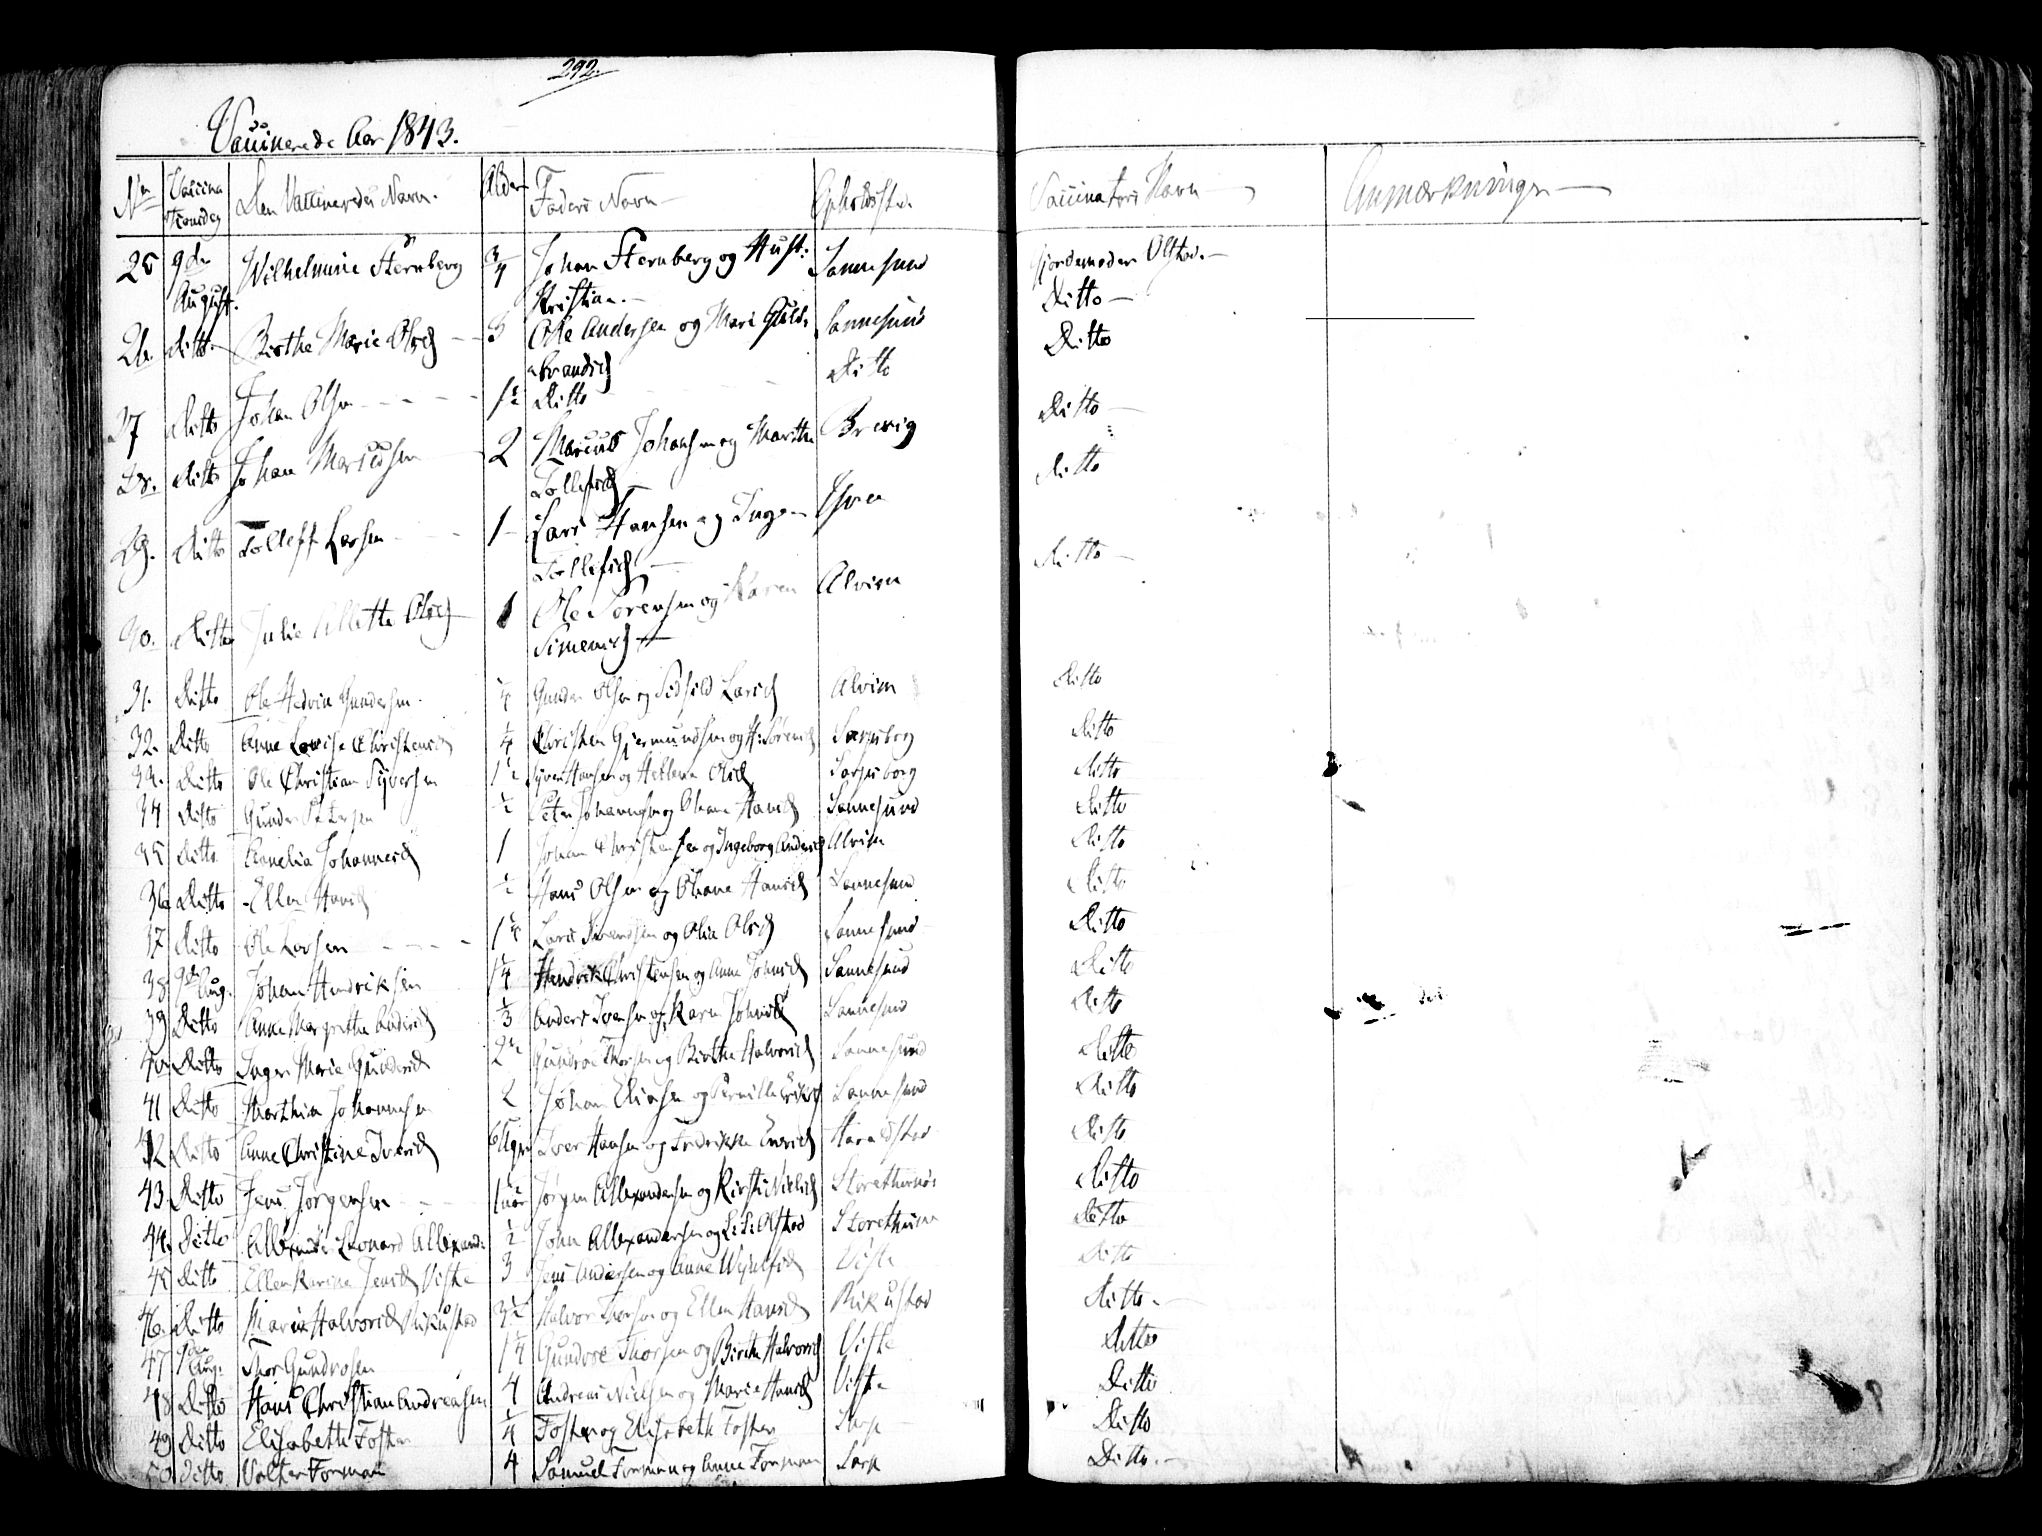 292.
Vaccinerede Aar 1843.
No Vaccina tionsdag Den Vaccineredes Navn. Alder Faders Navn Opholdsted Vaccinateurs Navn Anmærkninger
25 9de August. Wilhelmine Sternberg 3/4 Johan Sternberg og Hust: Kristian. Sannesund Gjordemoder Olstad. Ditto
26. ditto Birthe Marie Olsd Ole Andersen og Mari Sannesund Ditto
27 Ditto Johan Olsen 1½ Ditto Ditto Ditto
28. Ditto Johan Marcussen 2 Marcus Johansen og Marthe Tollefsd Brevig Ditto
29. Ditto Tolleff Larsen 1 Lars Hansen og Inger Tollefsd Ditto
30. Ditto Julie Allette Olsd 1 Ole Sørensen og Karen Simensd Alvim
31. Ditto Ole Hedvin Gundersen. ¼ Gunder Olsen og Larsd Alvim Ditto
32. Ditto Anne Lovise Christensd ¼ Christen Gjermundsen og H: Sørensd Sarpsborg Ditto
33. Ditto Ole Christian Syversen 1½ Syver Hansen og Helene Olsd Sarpsborg Ditto
34 Ditto Gunder Petersen ½ Peter Johannesen og Oliane Hansd Sannesund Ditto
35 Ditto Cornelia Johannesd 1 Johan Christensen og Ingeborg Andersd Alvim Ditto
36 Ditto Ellen Hansd ½ Hans Olsen og Oliane Hansd Sannesund Ditto
37 Ditto Ole Larsen 1¼ Lars Svendsen og Olia Olsd Sannesund Ditto
38 9de Aug. Johan Hendriksen 1¼ Hendrik Christensen og Anne Johnsd Sannesund Ditto
39 Ditto Anne Margrethe Andersd ⅓ Anders Svensen og Karen Johnsd Sannesund Ditto
40 Ditto Inger Marie Gundersd 2½ Gundroe Thorsen og Birthe Halvorsd Sannesund Ditto
41 Ditto Marthin Johannesen 2 Johan Eliasen og Pernille Eriksd Sannesund Ditto
42 Ditto Anne Christine Iversd 6 Uger Iver Hansen og Fredrikke Haraldstad Ditto
43. Ditto Jens Jørgensen Jørgen Allexandersen og Kirsti Nielsd Ditto
44. Ditto Allexander Leonard Allexand: ½ John Allexandersen og Lisi Olstad Ditto
45 Ditto Ellen Karine Jensd Viste 3 Jens Andersen og Anne Viste Ditto
46. Ditto Marie Halvorsd Rikustad 3½ Halvor Thorsen og Ellen Hansd Rikustad Ditto.
47 9den Aug. Thor Gundrosen 1¼ Gundroe Thorsen og Birthe Halvorsd Viste Ditto
48 Ditto Hans Christian Andreasen 4 Andreas Nielsen og Marie Hansd Viste Ditto
49 Ditto Elisabeth Foster ¼ Foster og Elisabeth Foster Sarp Ditto
50 Ditto Valter Forman 4 Samuel Forman og Anne Forman Sarp Ditto.